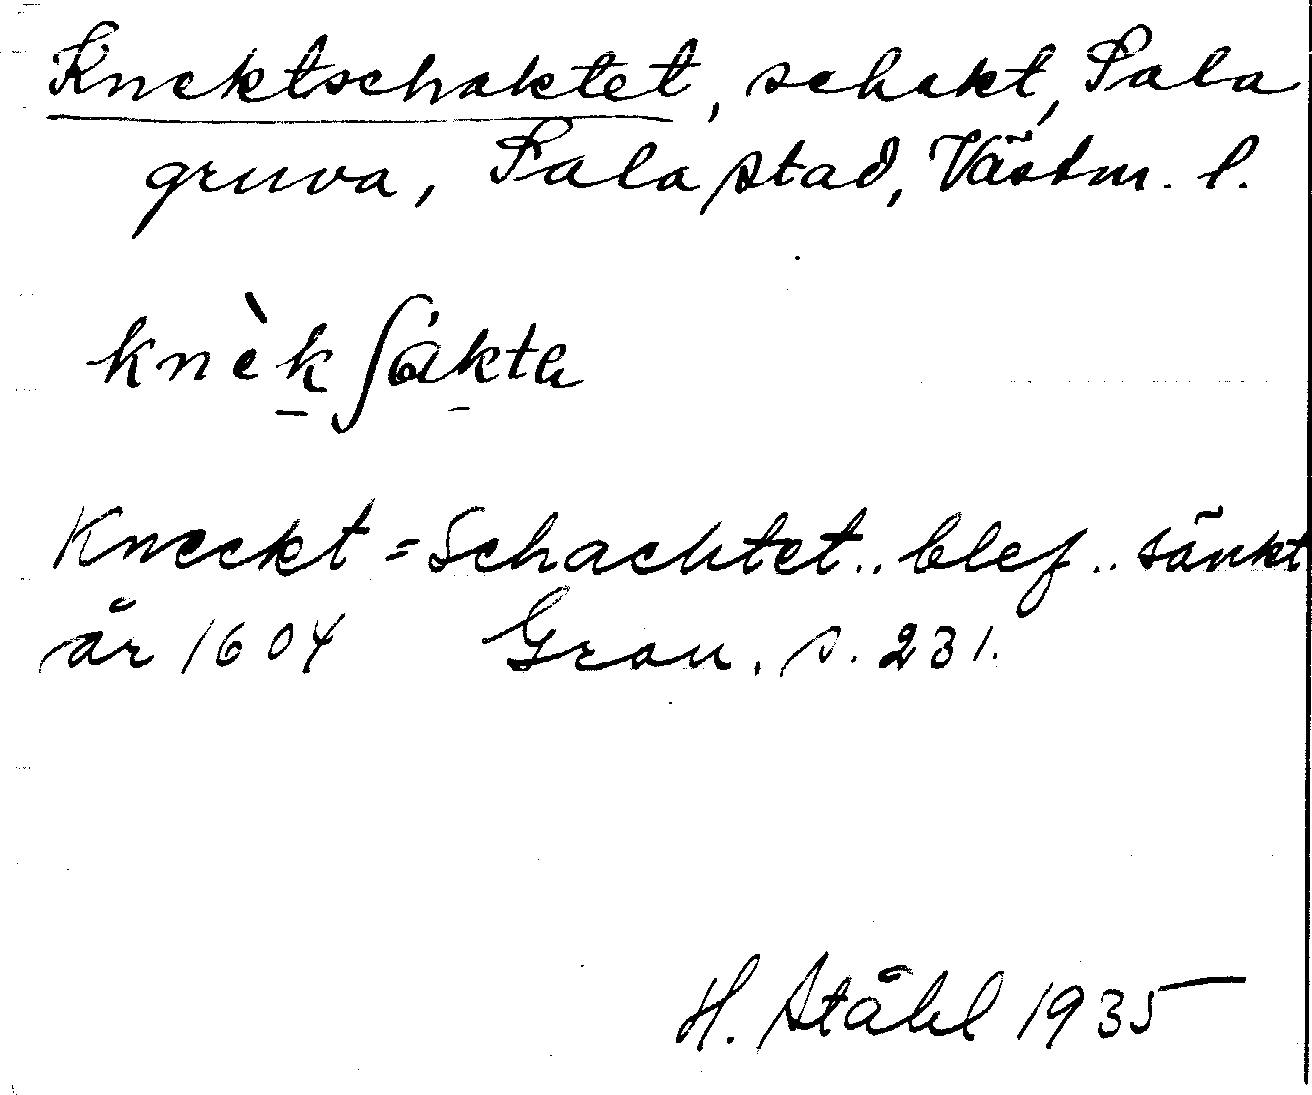 Knektschaktet, schakt, Sala
gruva, Sala stad, Västm. l.
knèkʃákta
Kneckt=Schachtet.. blef.. sänkt
år 1604 Grau. s. 231.
H. Ståhl 1935